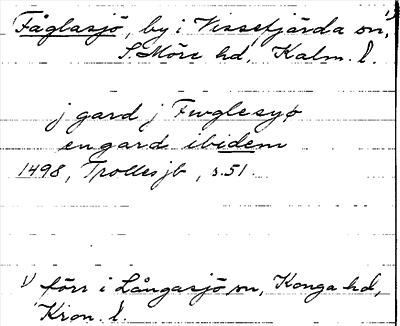 Fåglasjö, by i Vissefjärda sn, 1)
S. Möre hd, Kalm. l.
j gard j Fuglesyø
en gard ibidem
1498, Trolles jb, s. 51.
1) förr i Långasjö sn, Konga hd,
Kron. l.